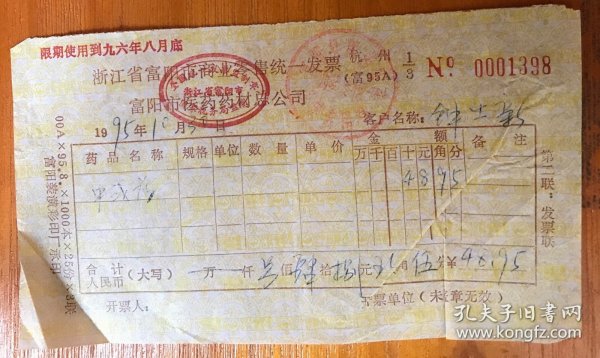 限期使用到九六年八月底
浙江省富阳市商业零售统一发票
杭州 1/3
(富95A)
No 0001398
富阳市医药药材总公司
浙江省富阳市
1995年1 月 日
客户名称:
药品名称 规格 单位 数量 单价 金额 备注
万千百十元角分
中成药 4895
合计人民币 (大写) 万 仟 佰 肆拾 元 角 伍 ¥48.95
开票人:
开票单位(未盖章无效)
第二联:发票联
00A×95.8.×1000本×25份×3联
富阳数减彩印厂承印
孔夫子旧书网
www.kongfz.com